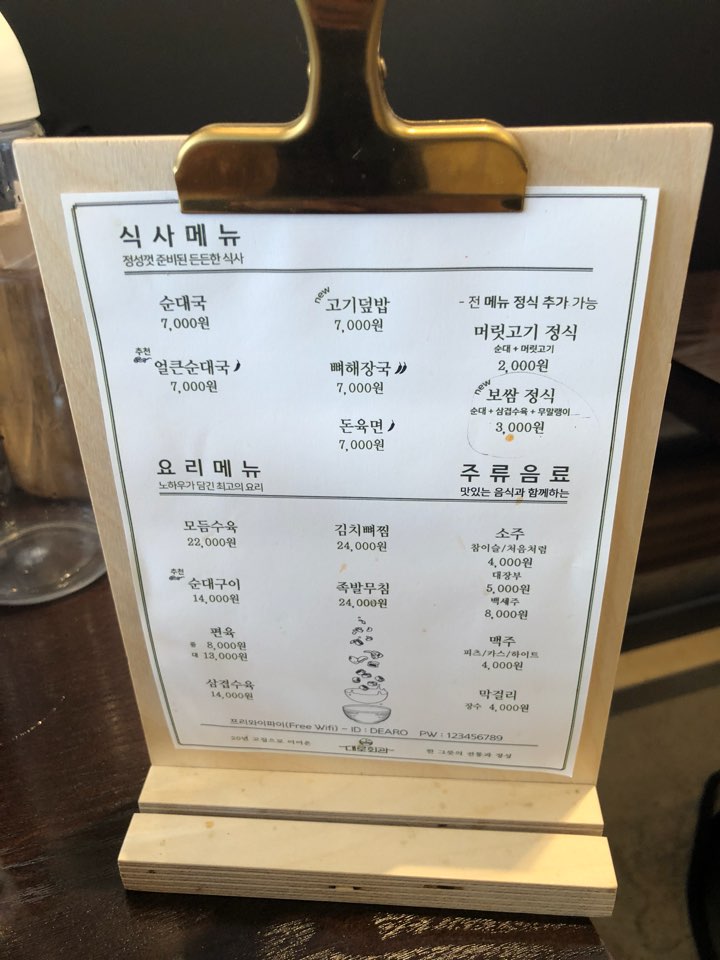 식사메뉴
정성껏 준비된 든든한 식사
순대국
7,000원
추천
얼큰순대국
7,000원
new
고기덮밥
7,000원
뼈해장국
7,000원
돈육면
7,000원
- 전 메뉴 정식 추가 가능
머릿고기 정식
순대 + 머릿고기
2,000원
new
보쌈 정식
순대 + 삼겹수육 + 무말랭이
3,000원
요리메뉴
노하우가 담긴 최고의 요리
모듬수육
22,000원
추천
순대구이
14,000원
편육
중 8,000원
대 13,000원
삼겹수육
14,000원
김치뼈찜
24,000원
족발무침
24,000원
주류음료
맛있는 음식과 함께하는
소주
참이슬/처음처럼
4,000원
대장부
5,000원
백세주
8,000원
맥주
피츠/카스/하이트
4,000원
막걸리
장수 4,000원
프리와이파이(Free Wifi) - ID : DEARO PW : 123456789
20년 고집으로 이어온
대로회관
한 그릇의 전통과 정성